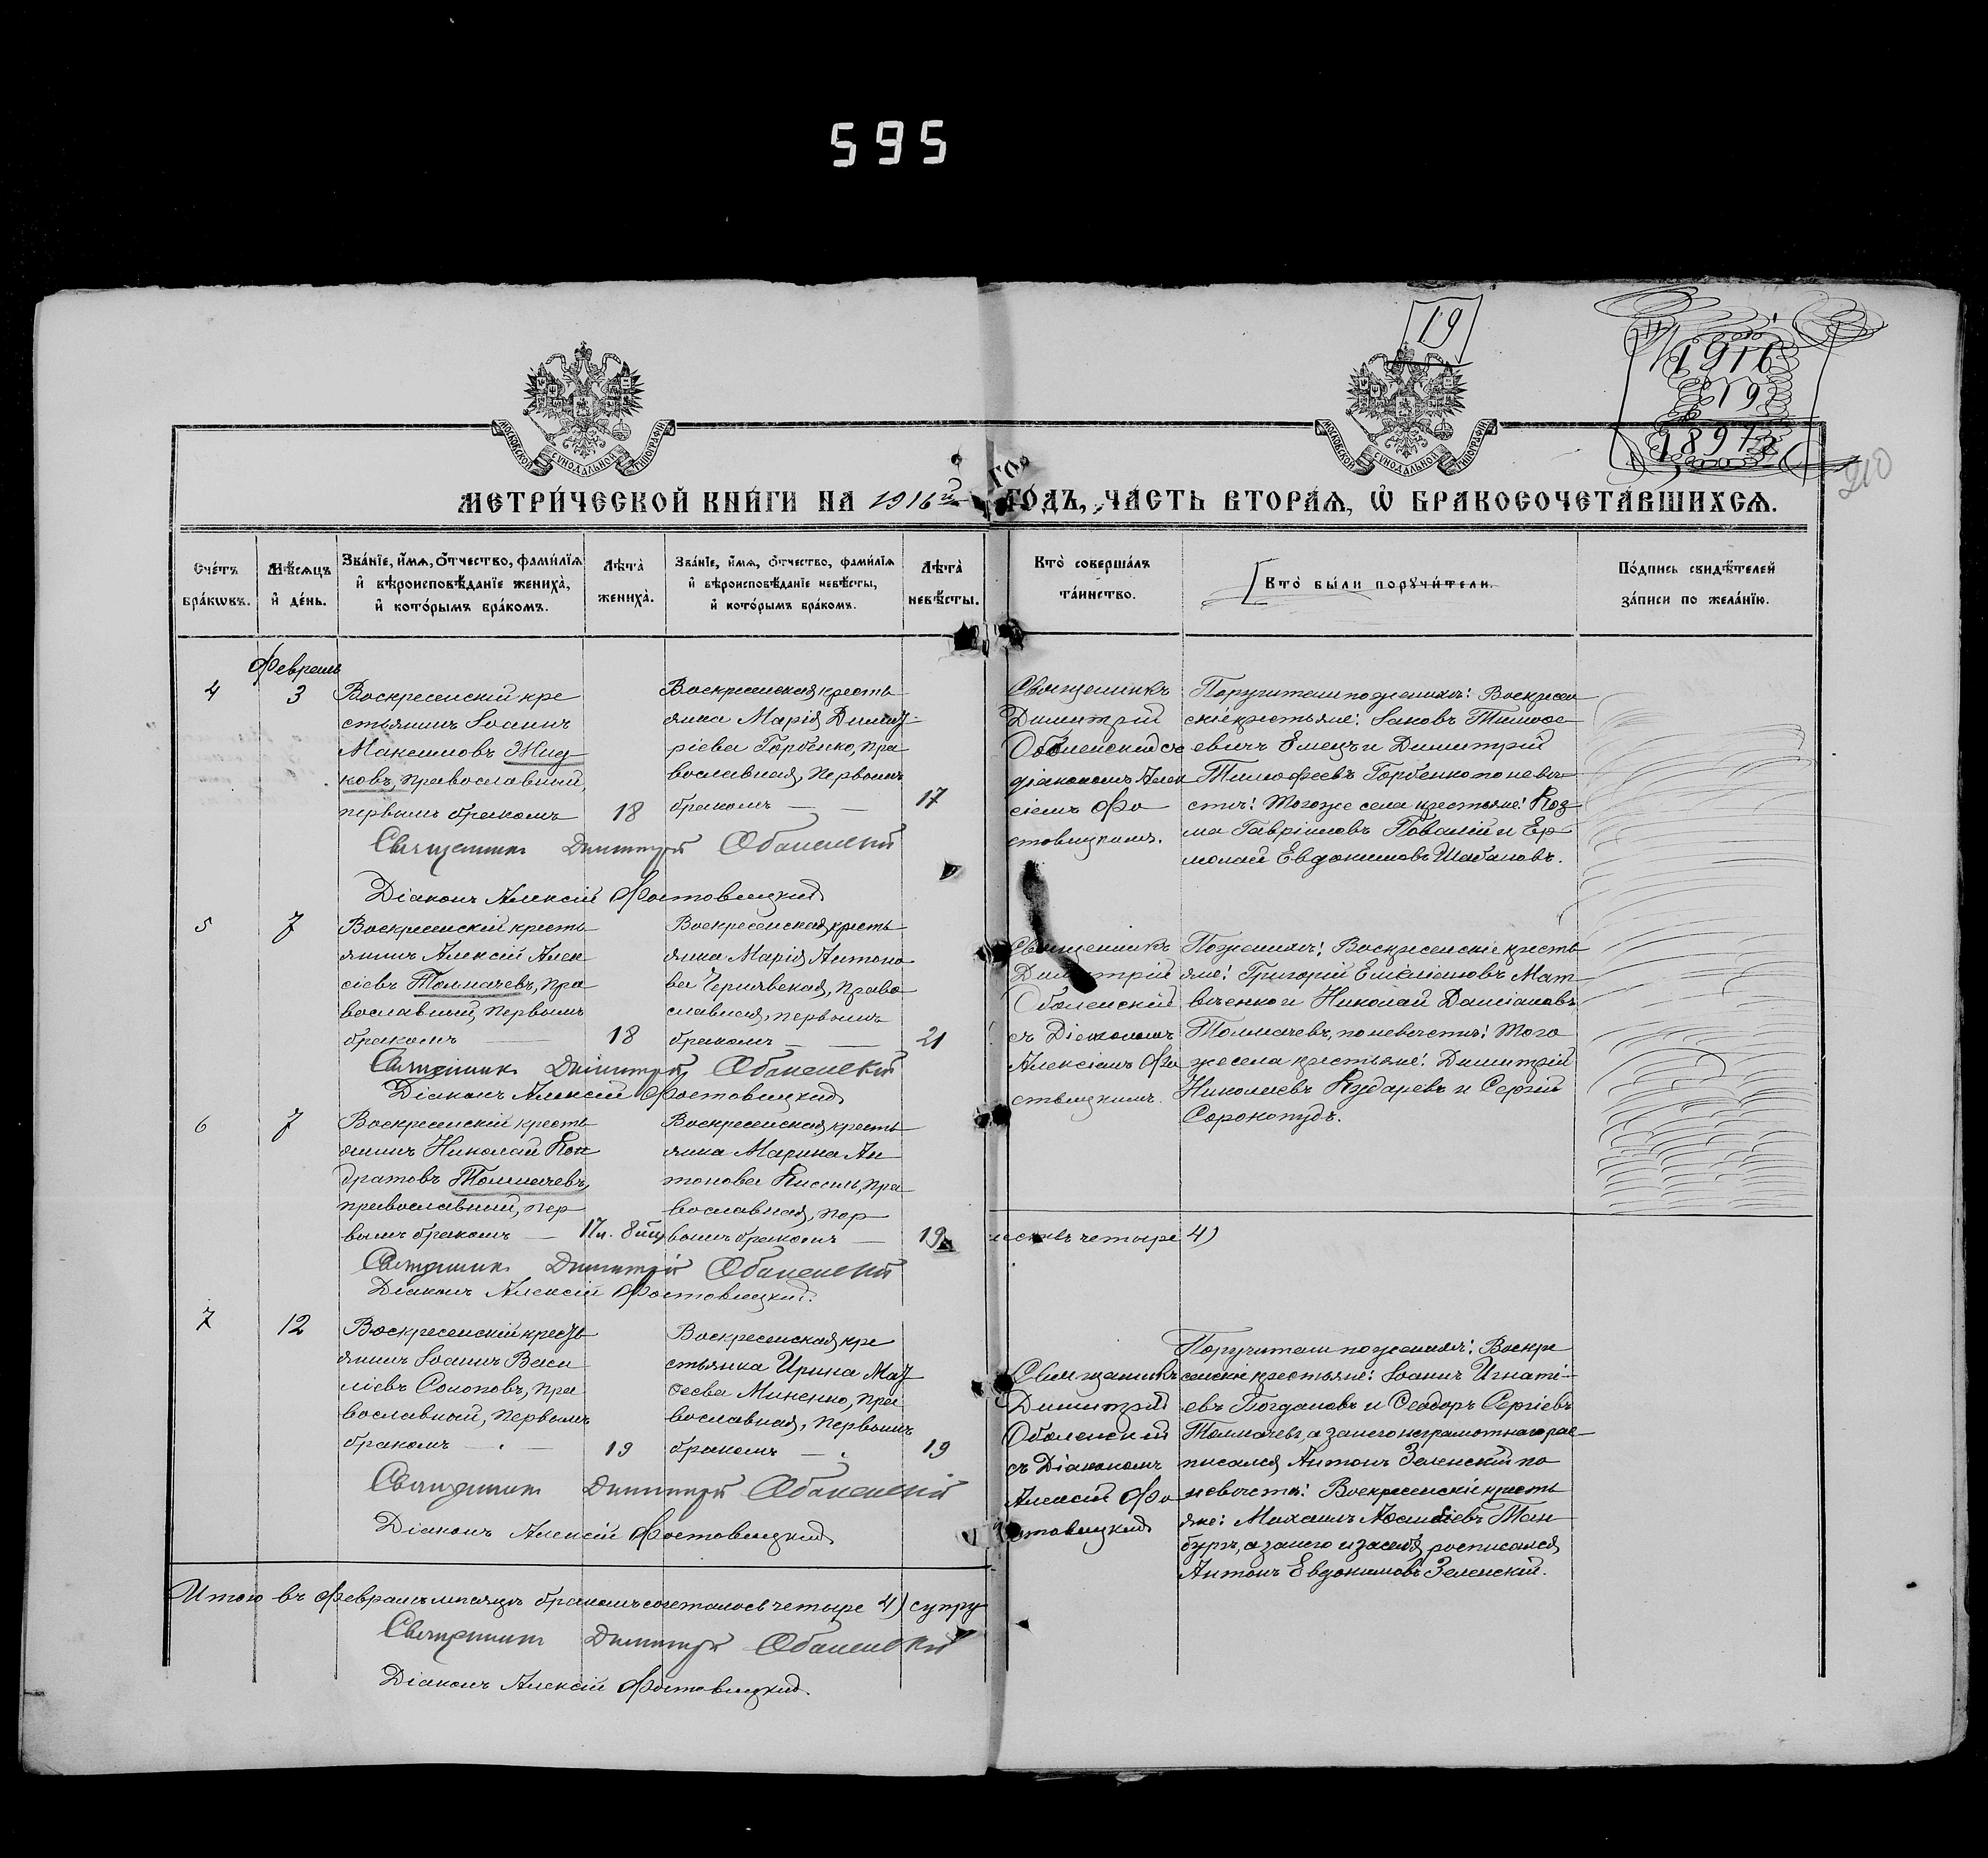 595
19
1916
19
1897
210
МОСКОВСКОЙ СѴНОДАЛЬНОЙ ТИПОГРАФІИ
МОСКОВСКОЙ СѴНОДАЛЬНОЙ ТИПОГРАФІИ
МЕТРИ́ЧЕСКОЙ КНИ́ГИ НА 1916й ГО́ДЪ, ЧА́СТЬ ВТОРА́Ѧ, Ѡ҆ БРАКОСОЧЕТА́ВШИХСѦ.
Сче́тъ бра́кѡвъ.
Мѣ́сѧцъ и҆ де́нь.
Зва́нїе, и҆́мѧ, ѻ҆́тчество, фами́лїѧ и҆ вѣроисповѣ́данїе жениха̀, и҆ кото́рымъ бра́комъ.
Лѣта̀ жениха̀.
Зва́нїе, и҆́мѧ, ѻ҆́тчество, фами́лїѧ и҆ вѣроисповѣ́данїе невѣ́сты, и҆ кото́рымъ бра́комъ.
Лѣта̀ невѣ́сты.
Кто̀ соверша́лъ та́инство.
Кто̀ бы́ли порꙋчи́тели.
По́дпись свидѣ́телей за́писи по жела́нїю.
Февраль
4
3
Воскресенскій кре
стьянинъ Іоаннъ
Максимовъ Жид
ковъ, православный,
первымъ бракомъ
18
Воскресенская кресть
янка Марія Димит
ріева Горбенко, пра
вославная, первымъ
бракомъ
17
Священникъ
Димитрій
Оболенскій съ
діакономъ Алек
сіемъ Фо
стовицкимъ.
Поручители по женихѣ: Воскресен
скіе крестьяне: Іаковъ Тимофе
евичъ Емецъ и Димитрій
Тимофеевъ Горбенко по невѣ
стѣ: того же села крестьяне: Коз
ма Гавріиловъ Повалій и Ер
молай Евдокимовъ Шабановъ.
Священникъ Димитрій Оболенскій
Діаконъ Алексій Фостовицкій
5
7
Воскресенскій кресть
янинъ Алексій Алек
сіевъ Толмачевъ, пра
вославный, первымъ
бракомъ
18
Воскресенская кресть
янка Марія Антоно
ва Чернявская, право
славная, первымъ
бракомъ
21
Священникъ
Димитрій
Оболенскій
съ Діакономъ
Алексіемъ Фо
стовицкимъ.
По женихѣ: Воскресенскіе кресть
яне: Григорій Емеліановъ Мат
вѣенко и Николай Даміановъ
Толмачевъ, по невѣстѣ: того
же села крестьяне: Димитрій
Николаевъ Кударевъ и Сергій
Сорокопудъ.
Священникъ Димитрій Оболенскій
Діаконъ Алексій Фостовицкій
6
7
Воскресенскій кресть
янинъ Николай Кон
дратовъ Толмачевъ,
православный, пер
вымъ бракомъ
17л. 8 мц
Воскресенская кресть
янка Марина Ан
тонова Кисиль, пра
вославная, пер
вымъ бракомъ
19
Священникъ Димитрій Оболенскій
Діаконъ Алексій Фостовицкій.
7
12
Воскресенскій кресть
янинъ Іоаннъ Васи
ліевъ Солоповъ, пра
вославный, первымъ
бракомъ
19
Воскресенская кре
стьянка Ирина Мат
ѳеева Миненко, пра
вославная, первымъ
бракомъ
19
Священникъ
Димитрій
Оболенскій
съ Діакономъ
Алексій Фо
стовицкій
Поручители по женихѣ: Воскре
сенскіе крестьяне: Іоаннъ Игнаті
евъ Богдановъ и Ѳеодоръ Сергіевъ
Толмачевъ, а за него неграмотнаго рас
писался Антонъ Зеленскій по
невѣстѣ: Воскресенскіе кресть
яне: Михаилъ
бургъ, а за него и за себя росписался
Антонъ Евдокимовъ Зеленскій.
Священникъ Димитрій Оболенскій
Діаконъ Алексій Фостовицкій
Итого въ Февралѣ мѣсяцѣ бракомъ сочеталось четыре 4) супру
жествъ четыре 4)
Священникъ Димитрій Оболенскій
Діаконъ Алексій Фостовицкій.